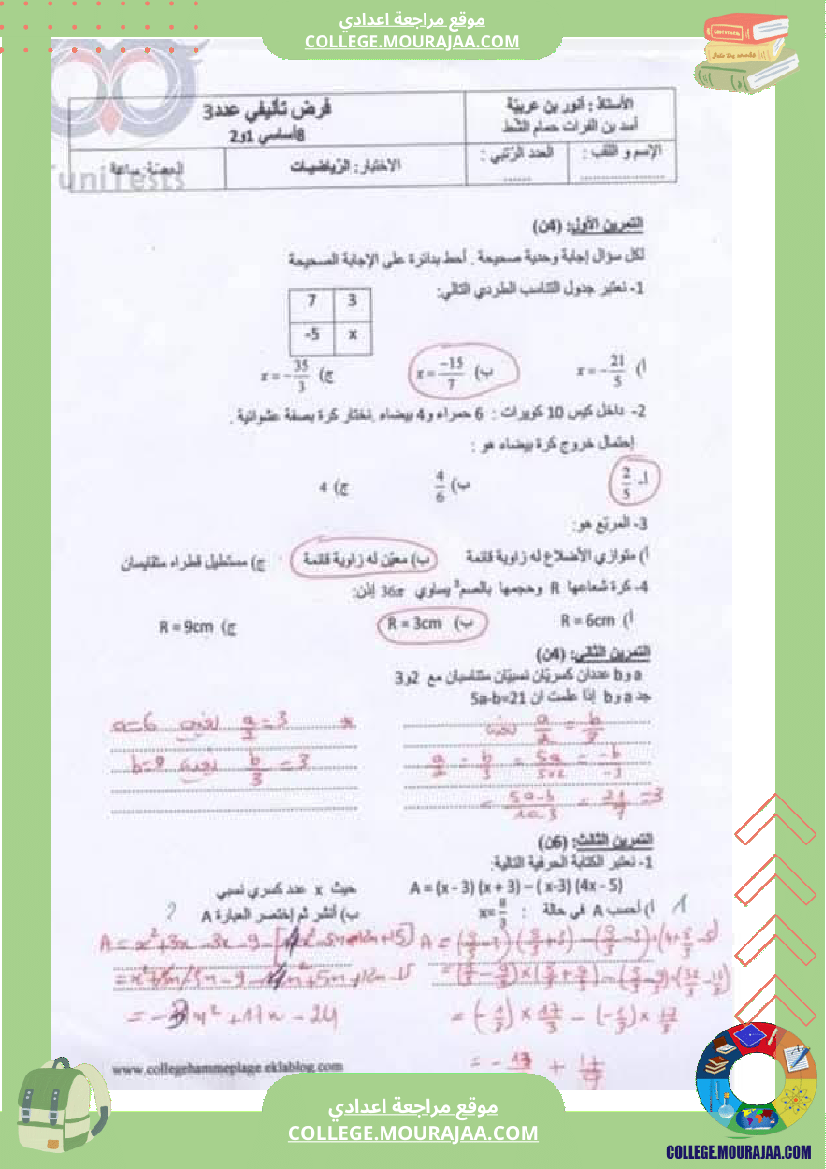 موقع مراجعة اعدادي
COLLEGE.MOURAJAA.COM
الأستاذ : أنور بن عربيّة
أسد بن الفرات حمام الشّط
فرض تأليفي عدد3
8أساسي 1و2
الإسم و اللقب :
العدد الرّتبي :
الاختبار : الرّياضيات
الحصّة: ساعة
uniTests
التمرين الأول: (4ن)
لكل سؤال إجابة وحدية صحيحة . أحط بدائرة على الإجابة الصحيحة
1- نعتبر جدول التناسب الطردي التالي:
7 3
-5 x
أ) x = -21/5 ب) x = -15/7 ج) x = -35/3
2- داخل كيس 10 كويرات : 6 حمراء و4 بيضاء .نختار كرة بصفة عشوائية .
إحتمال خروج كرة بيضاء هو :
أ- 2/5 ب) 4/6 ج) 4
3- المربّع هو:
أ) متوازي الأضلاع له زاوية قائمة ب) معيّن له زاوية قائمة ج) مستطيل قطراه متقايسان
4- كرة شعاعها R وحجمها بالصم³ يساوي 36π إذن:
أ) R = 6cm ب) R = 3cm ج) R = 9cm
التمرين الثاني: (4ن)
a و b عددان كسريّان نسبيّان متناسبان مع 2و3
جد a و b إذا علمت ان 5a-b=21
a/2 = b/3
a/2 = b/3 = 5a/5×2 = -b/-3
= 21/7 =3
a/2 = 3 a=6
b/3 = 3 b=9
التمرين الثالث: (6ن)
1- نعتبر الكتابة الحرفية التالية:
A = (x - 3) (x + 3) – ( x-3) (4x - 5) حيث x عدد كسري نسبي
أ) أحسب A في حالة : x= 8/3 1
ب) أنشر ثم إختصر العبارة A 2
= (-1/3) × 17/3 - (-1/3) × 17/3
A = x²+3x-3x-9-
= -3x²+17x-24
www.collegehammeplage.eklablog.com
موقع مراجعة اعدادي
COLLEGE.MOURAJAA.COM
COLLEGE.MOURAJAA.COM